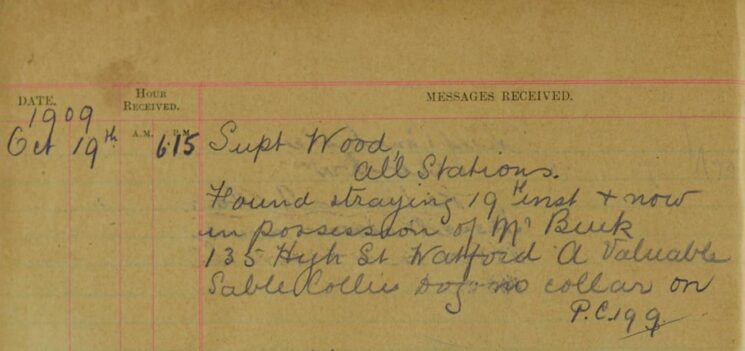 DATE.
HOUR RECEIVED.
MESSAGES RECEIVED.
1909
A.M. P.M.
Oct 19th 6.15 Supt Wood,
All Stations.
Found straying 19th inst + now
in possession of Mr Buck
135 High St Watford A Valuable
Sable Collie Dog no collar on
P.C. 199